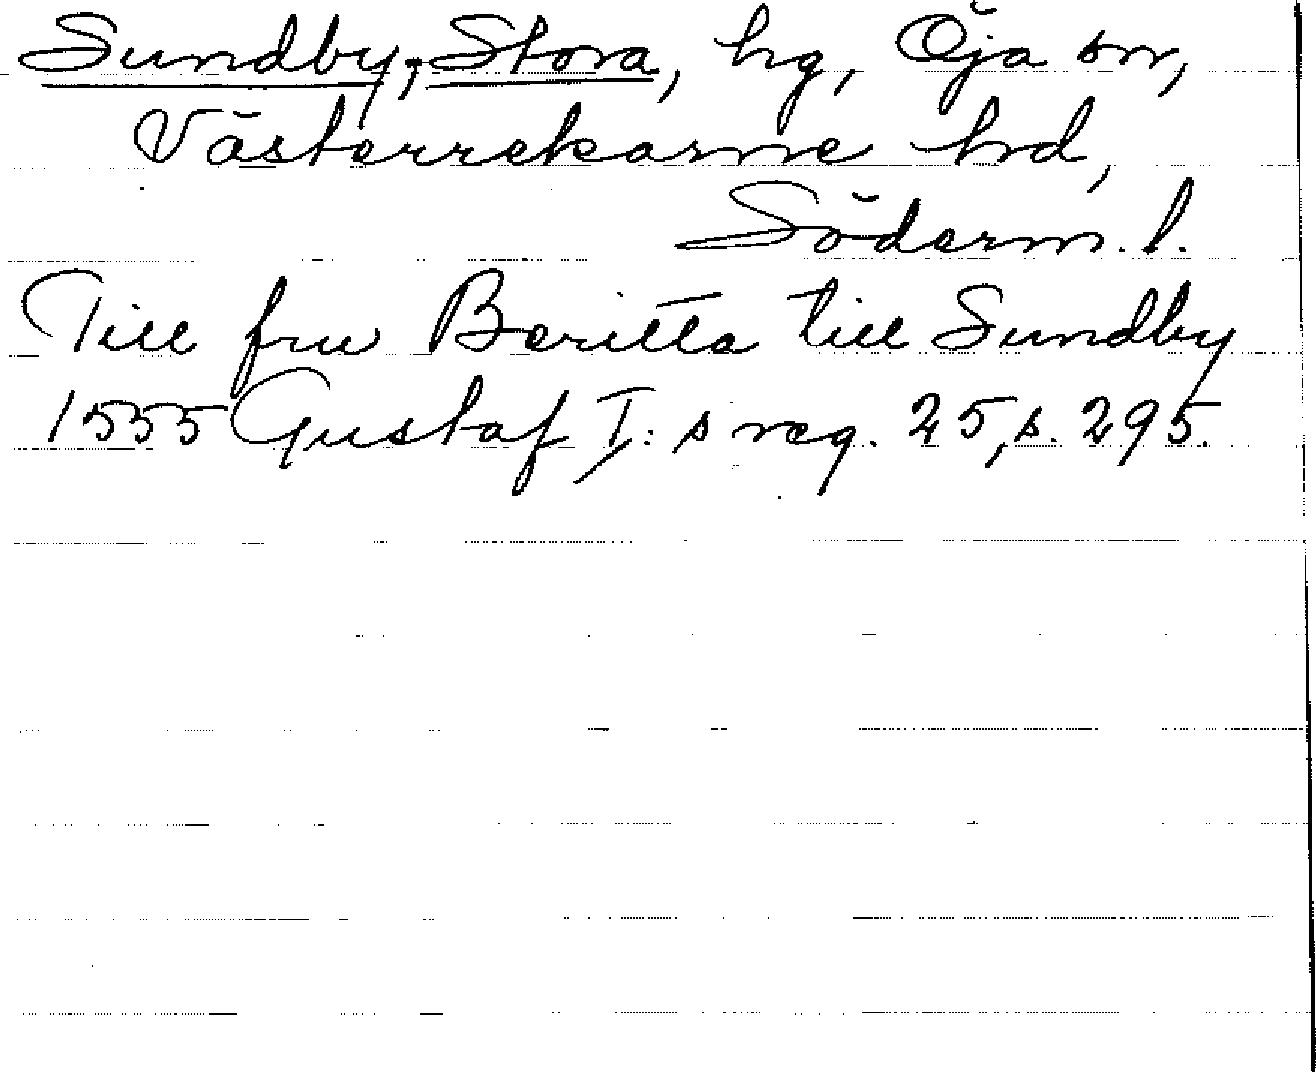 Sundby, Stora, hg, Öja sn,
Västerrekarne hrd,
Söderm. l.
Till fru Beritta till Sundby
1555 Gustaf I:s reg. 25, s. 295.